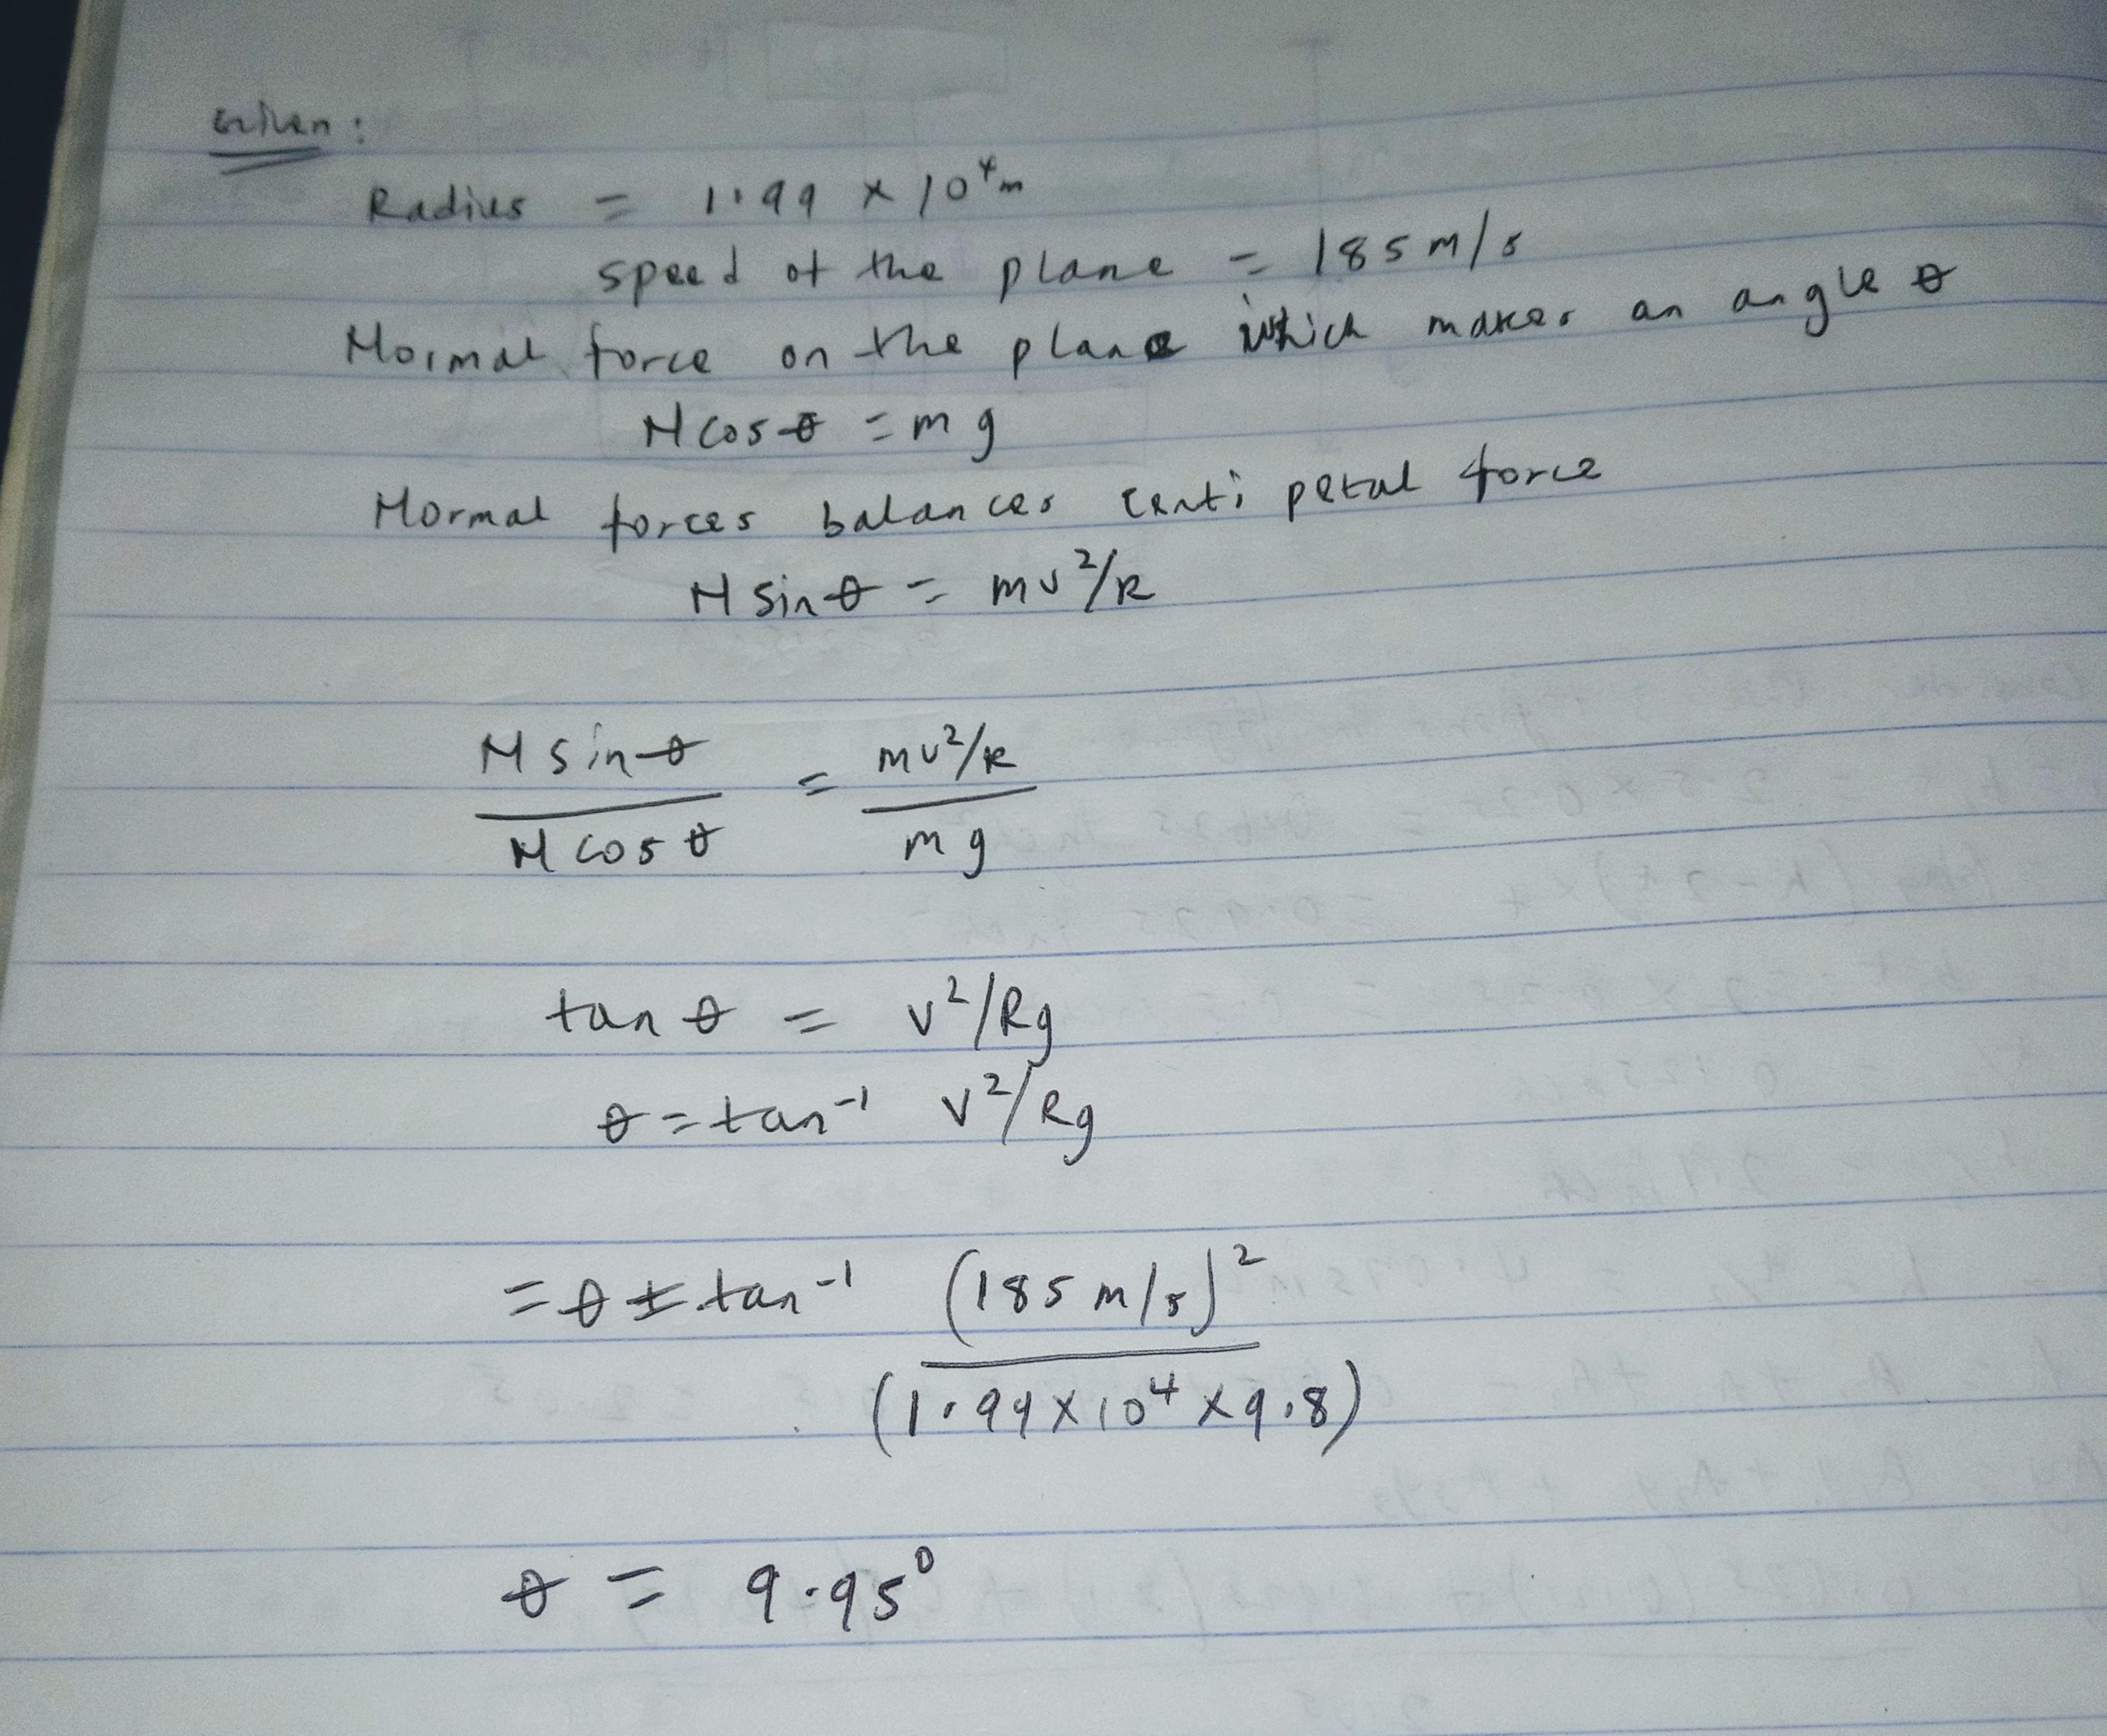 Given:
Radius = 1.99 × 10⁴m
speed of the plane = 185 m/s
Normal force on the plane which makes an angle θ
N cos θ = mg
Normal forces balances centi petal force
N sin θ = mv²/R
N sin θ / N cos θ = mv²/R / mg
tan θ = v²/Rg
θ = tan⁻¹ v²/Rg
= θ = tan⁻¹ (185 m/s)² / (1.99×10⁴ ×9.8)
θ = 9.95⁰